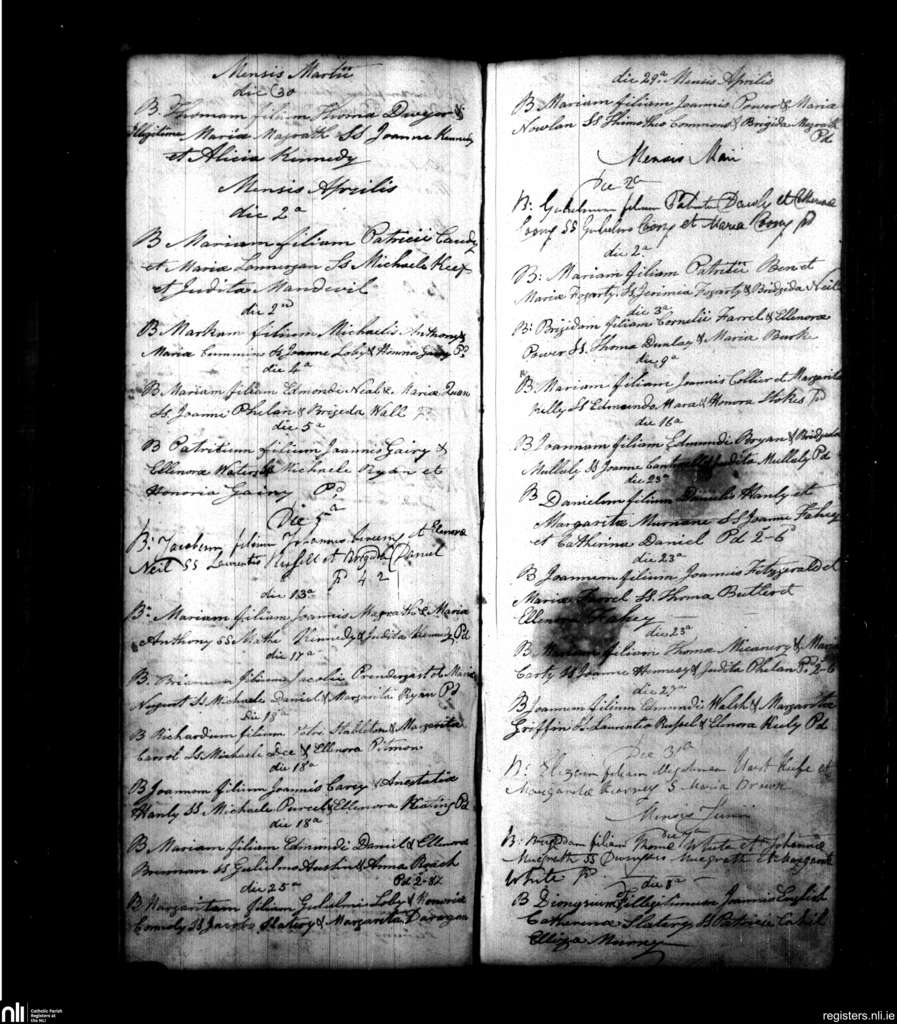 Mensis Martii
die 30
B. Thomam filium Thoma &
Illegitime Maria Magrath Ss Joanne Kennedy
et Alicia Kennedy
Mensis Aprilis
die 2ª
B Mariam filiam Patricii
et Maria Lannergan Ss Michaele Keef
et Judita Mandevil
die 2nd
B Markum filium Michaelis Anthony &
Maria Cummins Ss Joanne Loby & Honna Pd
die 4ª
B Mariam filiam Edmondi Neal & Maria
Ss Joanne Phelan & Brigida Wall
die 5ª
B Patritium filium Joannis Gairy &
Ellenora Waters Ss Michaele Ryan et
Honoria Gainy Pd
Die 5ª
B: Jacobum filium Joannis et Elenora
Neil SS Laurentio et Brigida Daniel
P 4 2
die 13ª
B: Mariam filiam Joannis Magrath & Maria
Anthony SS Kennedy & Judita Pd
die 17ª
B. filium Jacobi Prendergast et Maria
Nugent Ss Michaele Daniel & Margarita Ryan Pd
Die 18ª
B Richardum filium Petri Stableton & Margarita
Carrol Ss Michaele & Ellenora
die 18ª
B Joannam filiam Joannis Carey & Anestatia
Hanly SS Michaele Purcel & Ellenora Keating Pd
die 18ª
B Mariam filiam Edmundi Daniel & Ellenora
SS Gulielmo Austin & Anna Roach
die 25ª Pd 2-8½
B Margaritam filiam Gulielmi Loby & Honoria
Connoly SS Jacobo Slatery & Margarita
die 29ª Mensis Aprilis
B Mariam filiam Joannis Power & Maria
Nowlan SS Thimotheo Commons & Brigida Magrath
Pd
Mensis Maii
Die 2ª
B: Gulielmum filium Patritii Dowly et Catherina
SS Gulielmo et Maria Pd
die 2ª
B: Mariam filiam Patritii Ben et
Maria Fogarty Ss Jerimia Fogarty & Bridgida Neill
die 3ª
B: Brijidam filiam Cornelii Farrel & Ellenora
Power SS. Thoma Dunlay & Maria Burke
die 9ª
B. Mariam filiam Joannis Collier et Margarita
Kelly SS Edmundo Mara & Honora Stokes Pd
die 16ª
B Joannam filiam Edmundi Bryan & Bridgida
Mullaly SS Joanne Cantwell & Judita Mullaly Pd
die 23ª
B Danielem filium Danielis Hanly et
Margarita Murnane SS Joanne Fahey
et Catherina Daniel Pd 2-6
die 23ª
B Joannem filium Joannis Fitzgerald et
Maria Farrel SS. Thoma Butler et
Ellenora Fahey
die 23ª
B Mariam filiam Thoma & Maria
Carty SS Joanne Hennesy & Judita Phelan P. 2-6
die 27ª
B Joannem filium Edmundi Walsh & Margarita
Griffin Ss Laurentio Russel & Elenora Kiely Pd
Die 31ª
B: filiam illegitimam Keefe et
Margarita S Maria Brown
Mensis Junii
die 7ª
B: Brigidam filiam Thoma White et Johanna
Magrath SS Magrath et Margarita
White Pd
die 8ª
B Dionysium Illegitimum Joannis English
Catherina Slatery SS Patricio Cahill
Elliza
nli
Catholic Parish
Registers at
the NLI
registers.nli.ie